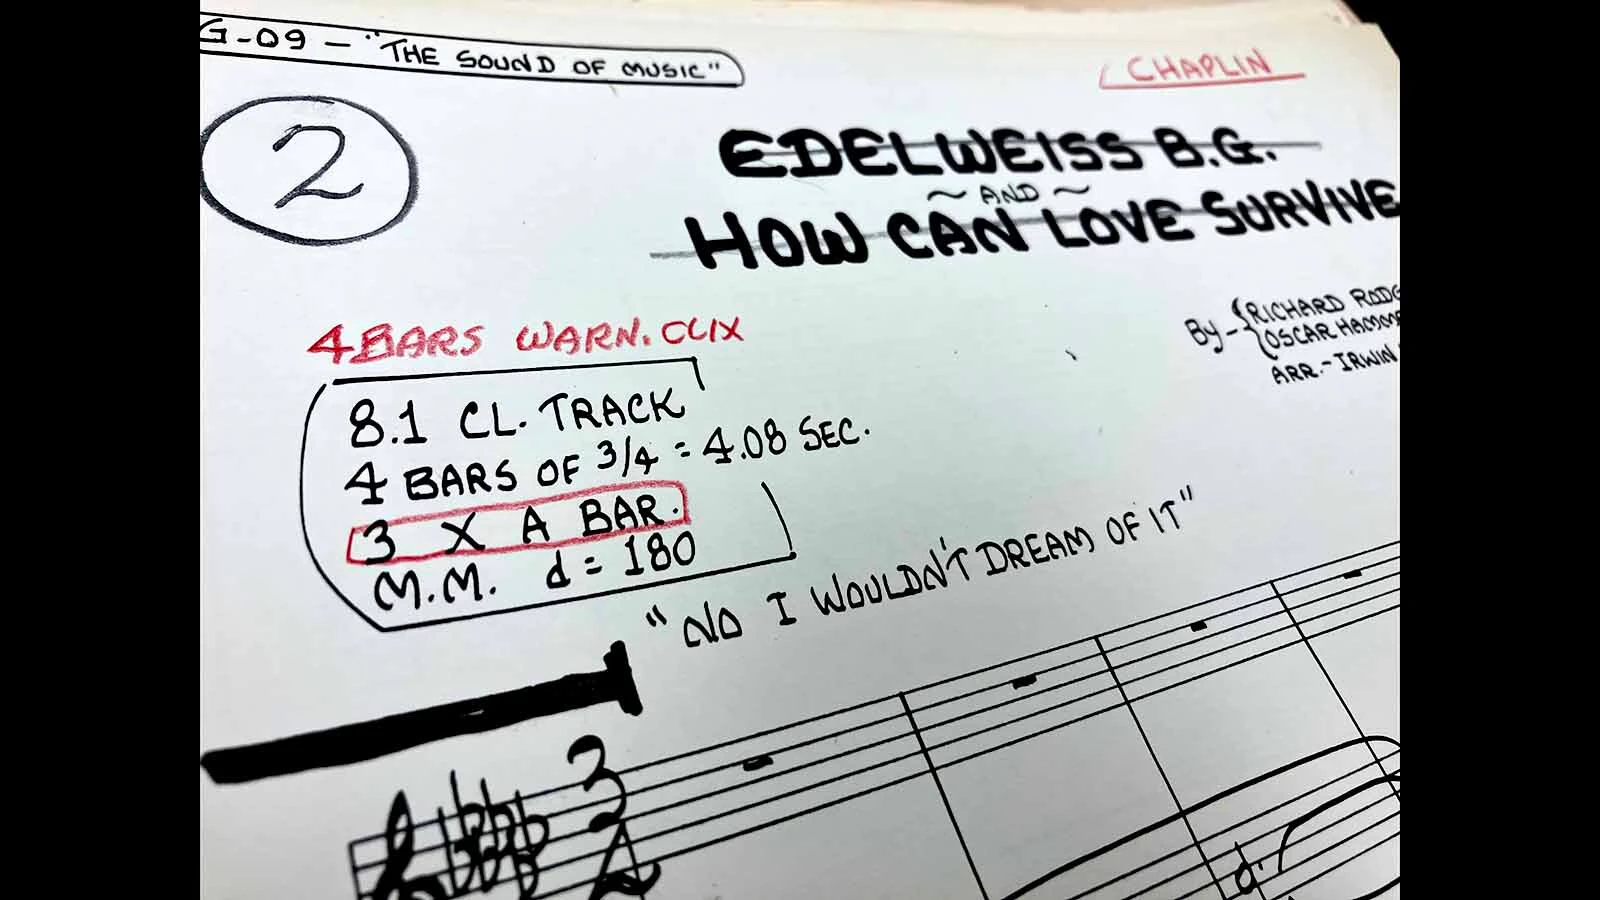 G-09 - "THE SOUND OF MUSIC"
CHAPLIN
2
EDELWEISS B.G.
~ AND ~
HOW CAN LOVE SURVIVE
By - { RICHARD RODG
OSCAR HAMME
ARR. - IRWIN
4 BARS WARN. CLIX
8.1 CL. TRACK
4 BARS OF 3/4 = 4.08 SEC.
3 X A BAR.
M.M. d = 180
"NO I WOULDN'T DREAM OF IT"
3
4